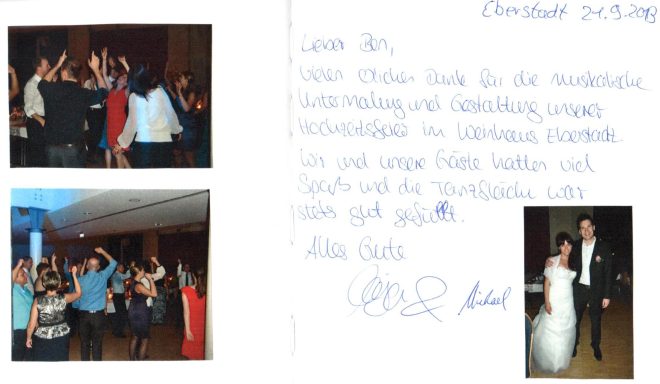 Eberstadt 21.9.2013
Lieber Ben,
vielen Dank für die musikalische
Untermalung und Gestaltung unserer
Hochzeitsfeier im Weinhaus Eberstadt.
Wir und unsere Gäste hatten viel
Spaß und die Tanzfläche war
stets gut gefüllt.
Alles Gute
& Michael